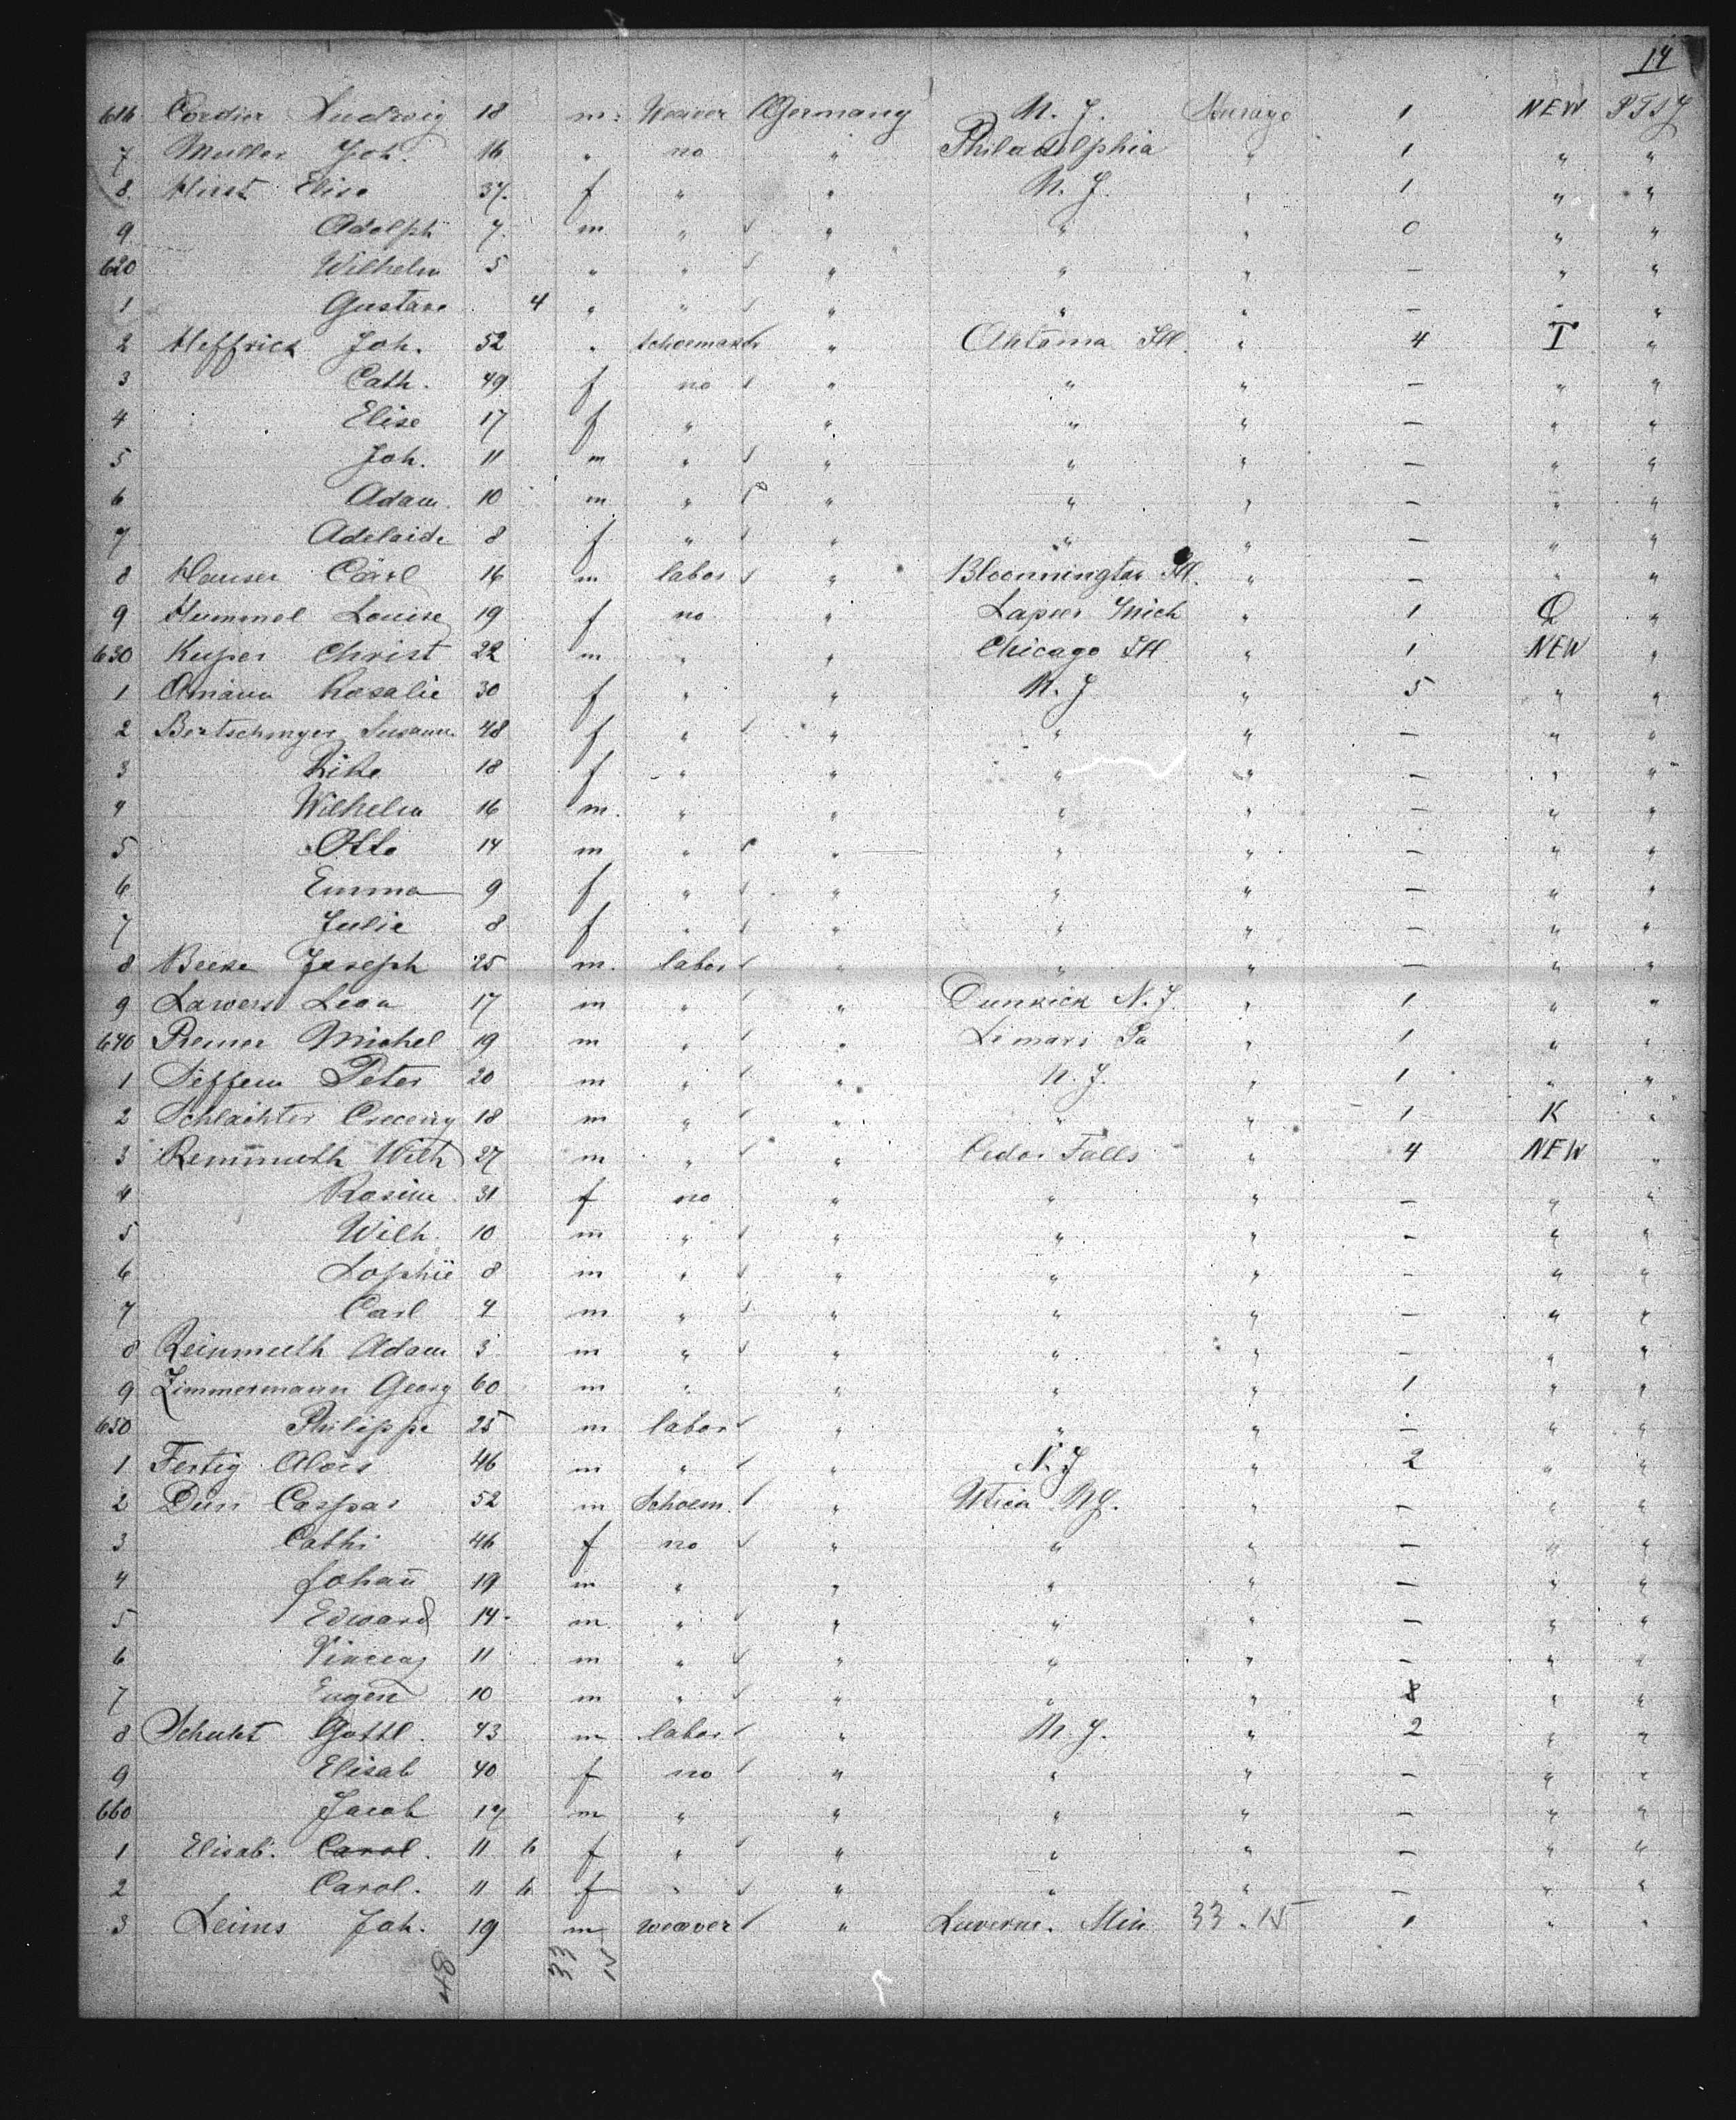 14
616 Cordier Ludwig 18 m. Weaver Germany N.Y. 1 NEW
7 Muller Joh. 16 " no " Philadelphia " 1 " "
8 Hirst Elise 37. f " " N.Y. " 1 " "
9 Adolph 7. m " " " " 0 " "
620 Wilhelm 5 " " " " " — " "
1 Gustave 4 " " " " " — " "
2 Heffrich Joh. 52 " Schoemaker " Ill. " 4 I "
3 Cath. 49 f no " " " — " "
4 Elise 17 f " " " " — " "
5 Joh. 11 m " " " " — " "
6 Adam 10 m " " " " — " "
7 Adelaide 8 f " " " " — " "
8 Hauser Carl 16 m labor " Bloomington Ill. " — " "
9 Hummel Louise 19 f no " Lapeer Mich " 1 Q "
630 Kuper Christ 22 m " " Chicago Ill " 1 NEW "
1 Amann Rosalie 30 f " " N.Y " 5 " "
2 Bertschinger Susann. 48 f " " " " — " "
3 Rike 18 f " " " " — " "
4 Wilhelm 16 m. " " " " — " "
5 Otto 14 m " " " " — " "
6 Emma 9 f " " " " — " "
7 Julie 8 f " " " " — " "
8 Joseph 25 m. labor " " " — " "
9 Lawers Leon 17 m " " Dunkick N.Y. " 1 " "
640 Remer Michel 19 m " " Limars Pa " 1 " "
1 Steffen Peter 20 m " " N.Y. " 1 " "
2 Schlachter 18 m " " " " 1 K "
3 Remmuth Wilh 27 m " " Cedar Falls " 4 NEW "
4 Rosine 31 f no " " " — " "
5 Wilh. 10 m " " " " — " "
6 Sophie 8 m " " " " — " "
7 Carl 4 m " " " " — " "
8 Reinmuth Adam 3 m " " " " — " "
9 Zimmermann Georg 60 m " " " " 1 " "
650 Philippe 25 m labor " " " — " "
1 Fertig Alois 46 m " " N.Y " 2 " "
2 Dun Caspar 52 m Schoem. " Utica NY. " — " "
3 Cathi 46 f no " " " — " "
4 Johan̄ 19 m " " " " — " "
5 Edward 14 m " " " " — " "
6 Vincenz 11 m " " " " — " "
7 Eugene 10 m " " " " 8 " "
8 Gottl. 43 m labor " N.Y. " 2 " "
9 Elisab 40 f no " " " — " "
660 Jacob 17 m " " " " — " "
1 Elisab. Carol. 11 6 f " " " " — " "
2 Carol. 11 6 f " " " " — " "
3 Leims Joh. 19 m weaver " Luverne. Min 33.15 1 " "
48 33 15